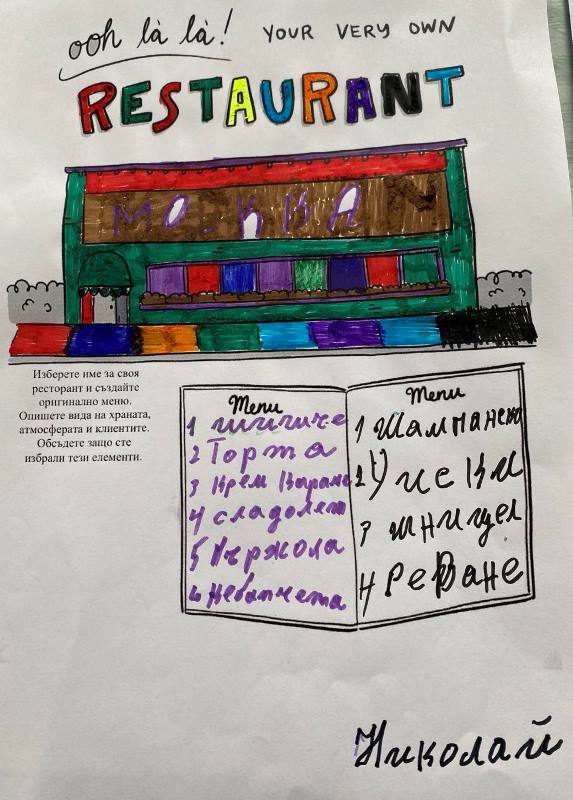 ooh là là! YOUR VERY OWN
RESTAURANT
МОСКВА
Изберете име за своя
ресторант и създайте
оригинално меню.
Опишете вида на храната,
атмосферата и клиентите.
Обсъдете защо сте
избрали тези елементи.
Menu
1 шишче
2 Торта
3 Крем Карамел
4 сладолет
5 Пържола
6 Кебапчета
Menu
1 Шампанско
2 Уиски
3 шницел
4 Реване
Николай